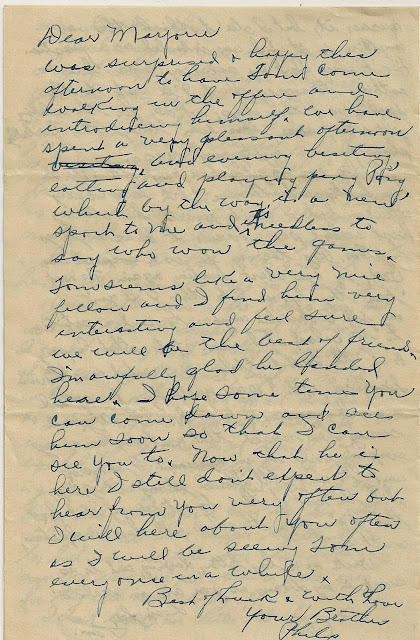 Dear Marjorie
was surprised & happy this
afternoon to have Tom come
walking in the office and
introducing himself. We have
spent a very pleasant afternoon
visiting and evening visiting
eating and playing ping Pong
which by the way is a new
sport to me and its needless to
say who won the games.
Tom seems like a very nice
fellow and I find him very
interesting and feel sure
we will be the best of friends.
I'm awfully glad he landed
here. I hope some time you
can come down and see
him soon so that I can
see you to. Now that he is
here I still don't expect to
hear from you very often but
I will here about you often
as I will be seeing Tom
every once in a while.
Best of Luck & with Love
Your Brother
Philip